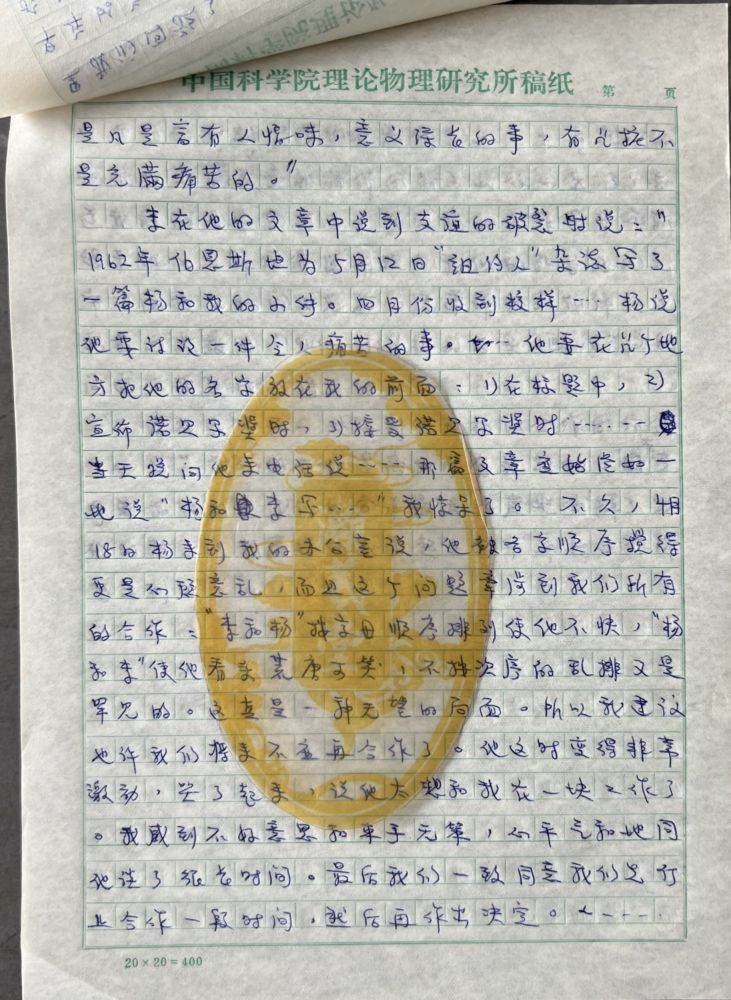 中国科学院理论物理研究所稿纸 第 页
是凡是富有人情味,意义深长的事,有几桩不
是充满痛苦的。"
李在他的文章中说到友谊的破裂时说:"
1962年伯恩斯坦为5月12日"纽约人"杂誌写了
一篇杨和我的文件。四月份收到校样……杨说
他要讨论一件令人痛苦的事。……他要在几个地
方把他的名字放在我的前面:1)在标题中,2)
宣佈诺贝尔奖时,3)接受诺贝尔奖时…………
当天晚间他来电话说……那篇文章应始终如一
地说"杨和李写……"我惊呆了。不久,4月
18日杨来到我的办公室说,他被名字顺序搅得
更是心烦意乱,而且这个问题牵涉到我们所有
的合作:"李和杨"按字母顺序排列使他不快,"杨
和李"使他看来荒唐可笑,不按次序的乱排又是
罕见的。这真是一种无望的局面。所以我建议
也许我们将来不应再合作了。他这时变得非常
激动,哭了起来,说他太想和我在一块工作了
。我感到不好意思和束手无策,心平气和地同
他谈了很长时间。最后我们一致同意我们先停
止合作一段时间,然后再作出决定。……
20×20=400